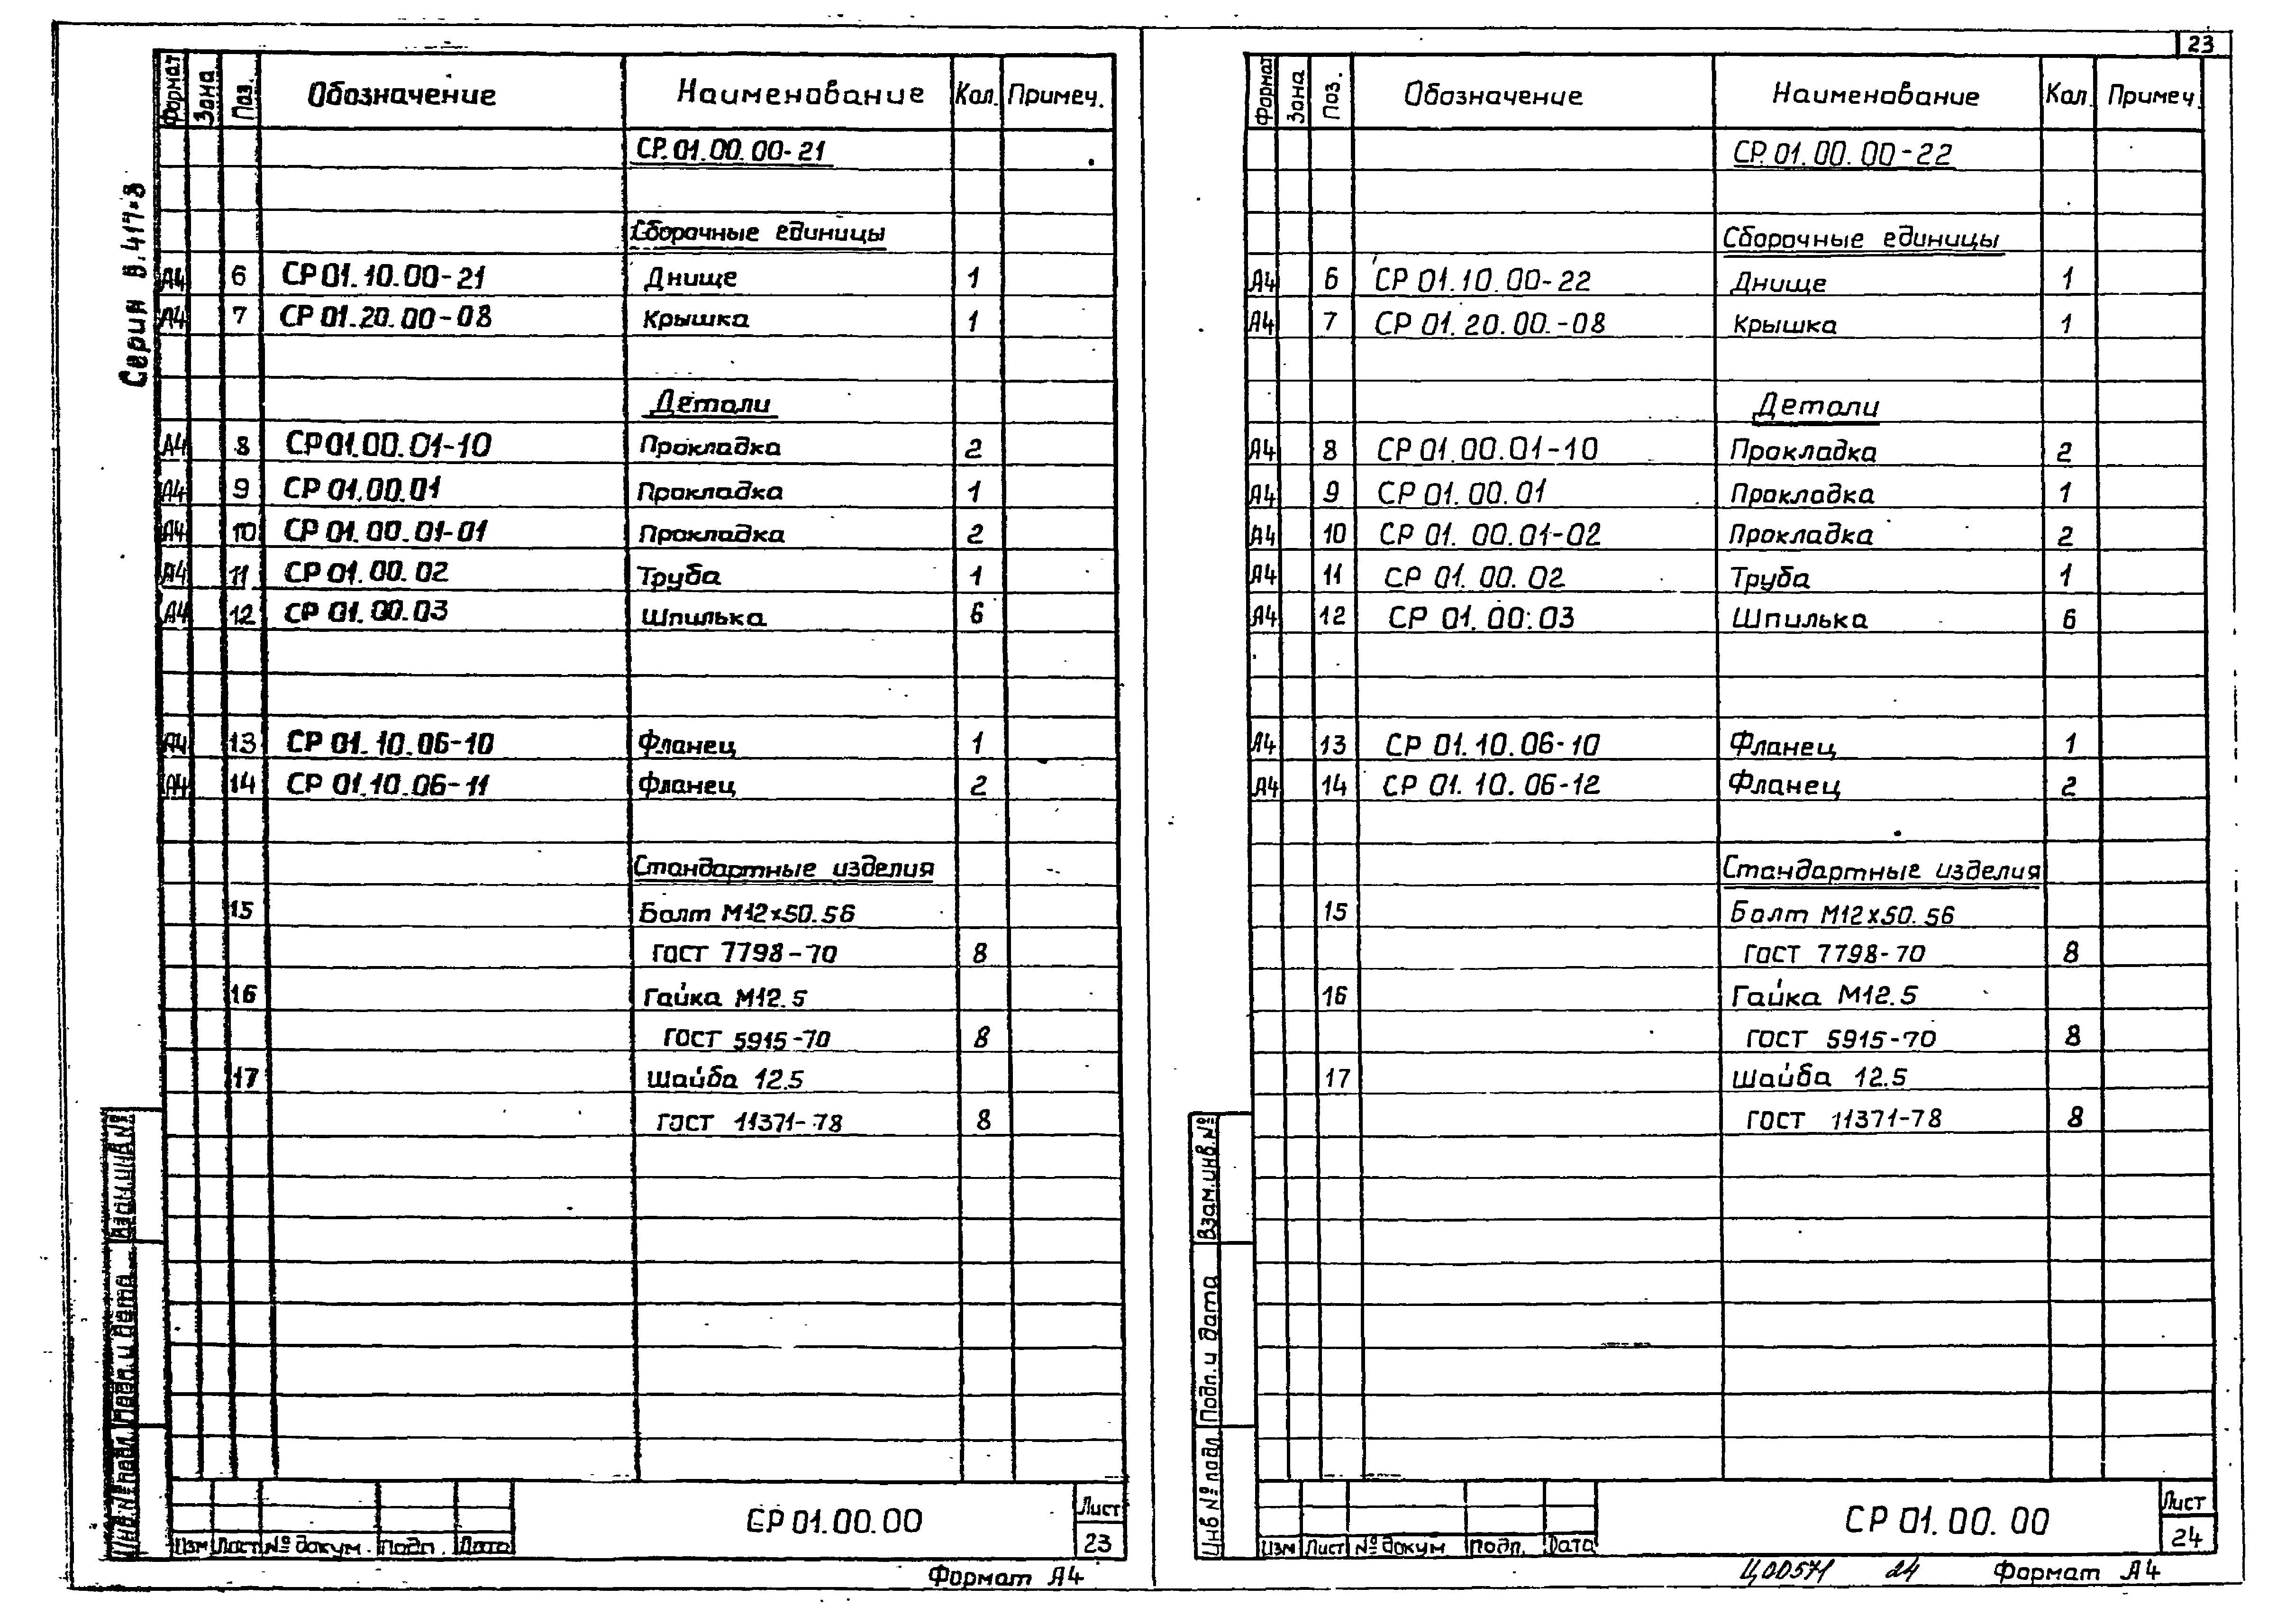 Серия 5.417-8
Формат Зона Поз. Обозначение Наименование Кол. Примеч.
СР.01.00.00-21
Сборочные единицы
А4 6 СР 01.10.00-21 Днище 1
А4 7 СР 01.20.00-08 Крышка 1
Детали
А4 8 СР 01.00.01-10 Прокладка 2
А4 9 СР 01.00.01 Прокладка 1
А4 10 СР 01.00.01-01 Прокладка 2
А4 11 СР 01.00.02 Труба 1
А4 12 СР 01.00.03 Шпилька 6
А4 13 СР 01.10.06-10 Фланец 1
А4 14 СР 01.10.06-11 Фланец 2
Стандартные изделия
15 Болт М12х50.56
ГОСТ 7798-70 8
16 Гайка М12.5
ГОСТ 5915-70 8
17 Шайба 12.5
ГОСТ 11371-78 8
Взам.инв.№
Подп. и дата
Инв.№ подл.
СР 01.00.00
Лист
23
Изм Лист № докум. Подп. Дата
Формат А4
23
Формат Зона Поз. Обозначение Наименование Кол. Примеч.
СР.01.00.00-22
Сборочные единицы
А4 6 СР 01.10.00-22 Днище 1
А4 7 СР 01.20.00.-08 Крышка 1
Детали
А4 8 СР 01.00.01-10 Прокладка 2
А4 9 СР 01.00.01 Прокладка 1
А4 10 СР 01.00.01-02 Прокладка 2
А4 11 СР 01.00.02 Труба 1
А4 12 СР 01.00.03 Шпилька 6
А4 13 СР 01.10.06-10 Фланец 1
А4 14 СР 01.10.06-12 Фланец 2
Стандартные изделия
15 Болт М12х50.56
ГОСТ 7798-70 8
16 Гайка М12.5
ГОСТ 5915-70 8
17 Шайба 12.5
ГОСТ 11371-78 8
Взам.инв.№
Подп. и дата
Инв № подл
СР 01.00.00
Лист
24
Изм Лист № докум Подп. Дата
Ц00571 24 Формат А4